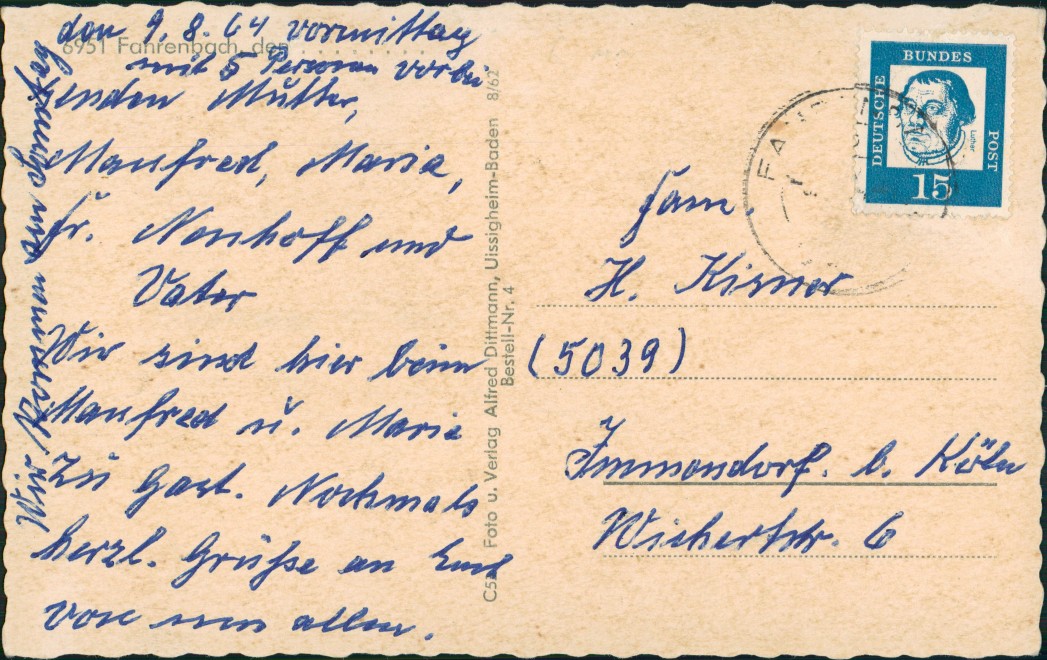 den 9.8.64 vormittag
6951 Fahrenbach, den
mit 5 Personen vorbei
senden Mutter,
Manfred, Maria,
Fr. Neuhoff und
Vater
Wir sind hier beim
Manfred u. Maria
zu Gast. Nochmals
herzl. Grüße an Euch
von uns allen.
Wir kommen am
C52 Foto u. Verlag Alfred Dittmann, Uissigheim-Baden 8/62
Bestell-Nr. 4
DEUTSCHE
BUNDES
POST
Luther
15
Fam.
H. Kirner
(5039)
Immendorf b. Köln
Wichertstr. 6